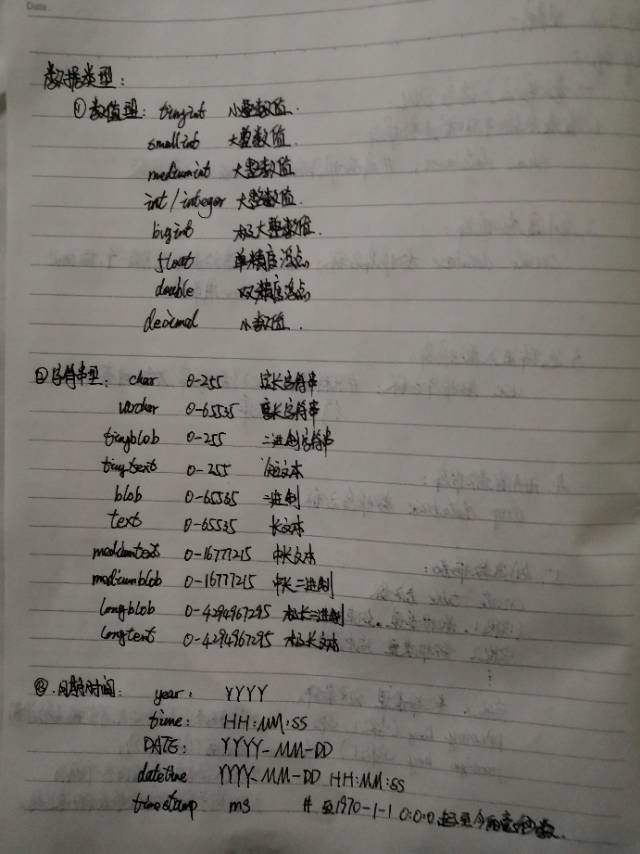 Date
数据类型:
①数值型: tinyint 小整数值.
smallint 大整数值.
mediumint 大整数值
int/integer 大整数值.
bigint 极大整数值.
float 单精度浮点
double 双精度浮点
decimal 小数值.
②字符串型: char 0-255 定长字符串
varchar 0-65535 变长字符串
tinyblob 0-255 二进制字符串
tinytext 0-255 短文本
blob 0-65535 二进制
text 0-65535 长文本
mediumtext 0-16777215 中长文本
mediumblob 0-16777215 中长二进制
longblob 0-4294967295 极长二进制
longtext 0-4294967295 极长文本
③.日期时间: year: YYYY
time: HH:MM:SS
DATE: YYYY-MM-DD
datetime YYYY-MM-DD HH:MM:SS
timestamp ms # 至1970-1-1 0:0:0 起至今的毫秒数.